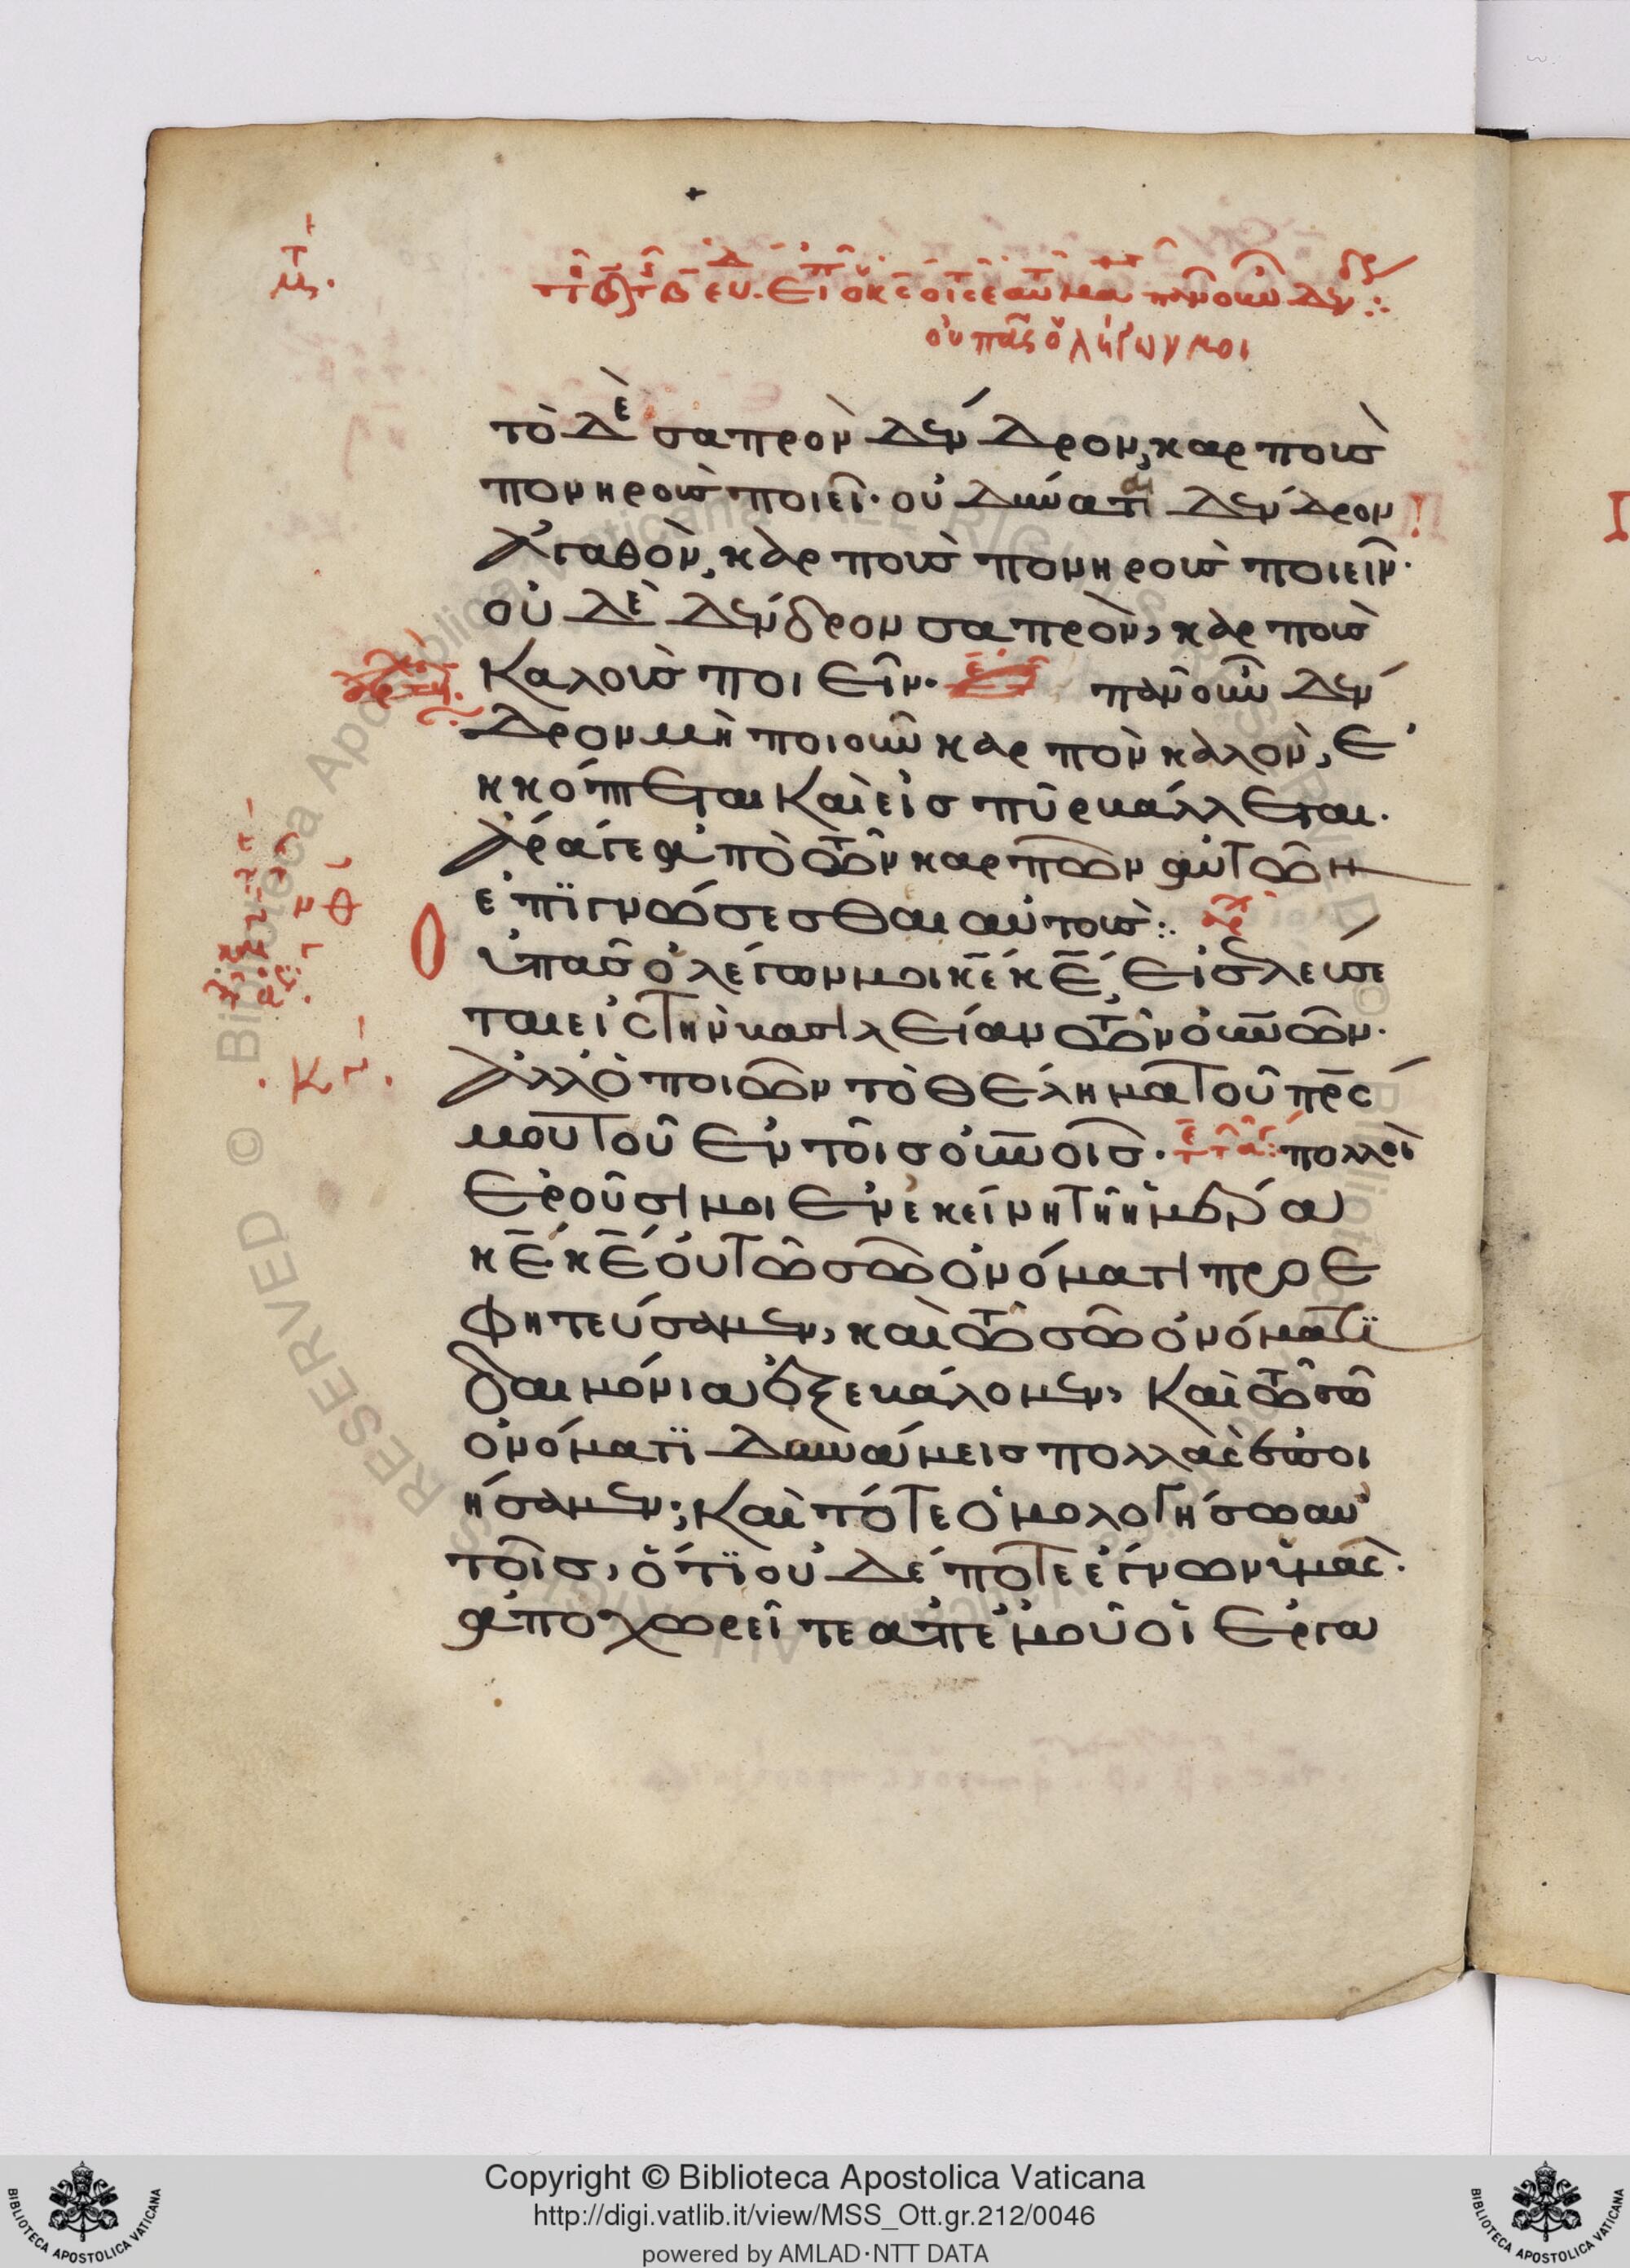 οὐ πᾶς ὁ λέγων μοι
τὸ δὲ σαπρὸν δένδρον, καρποὺσ
πονηροὺσ ποιεῖ· οὐ δύναται δένδρον
ἀγαθὸν, καρποὺσ πονηροὺσ ποιεῖν·
οὐδὲ δένδρον σαπρὸν, καρποὺσ
καλοὺσ ποιεῖν· πᾶν οὖν δέν
δρον μὴ ποιοῦν καρπὸν καλὸν, ἐ
κκόπτεται καὶ εἰσ πῦρ βάλλεται.
ἄράγε ἀπὸ τῶν καρπῶν αὐτῶν
ἐπιγνώσεσθαι αὐτοὺσ:.
Ὀυ πᾶσ ὁ λέγων μοι κ̅ε̅ κ̅ε̅, εἰσελεύσε
ται εἰσ τὴν βασιλείαν τῶν ὀυ̅ν̅ῶν·
ἀλλ' ὁ ποιῶν τὸ θέλημα τοῦ π̅ρ̅σ̅
μου τοῦ ἐν τοῖσ ὀυ̅ν̅οῖσ. πολλοὶ
ἐροῦσι μοι ἐν ἐκείνη τῆ ἡμέρα
κ̅ε̅ κ̅ε̅ ὀυ τῶ σῶ ὀνόματι προε
φητεύσαμεν, καὶ τῶ σῶ ὀνόματι
δαιμόνια ἐξεβάλομεν, καὶ τῶ σῶ
ὀνόματι δυνάμεισ πολλὰσ ἐποι
ήσαμεν; καὶ τότε ὁμολογήσω αὐ
τοῖσ, ὅτι οὐδέποτε ἔγνων ὑμᾶσ.
ἀποχωρεῖτε ἀπ' ἐμοῦ οἱ ἐργα
Copyright © Biblioteca Apostolica Vaticana
http://digi.vatlib.it/view/MSS_Ott.gr.212/0046
powered by AMLAD·NTT DATA
BIBLIOTECA APOSTOLICA VATICANA
BIBLIOTECA APOSTOLICA VATICANA